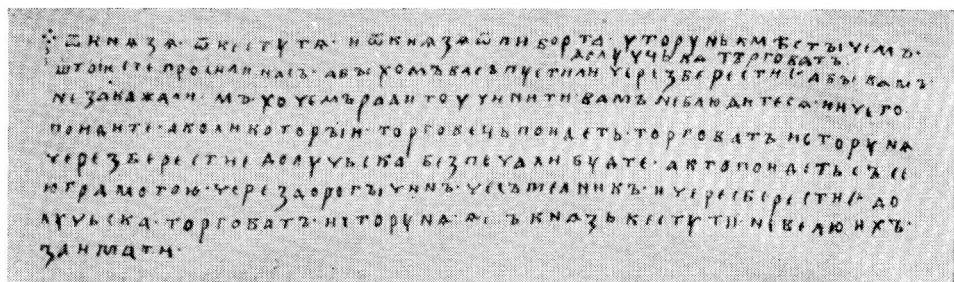 ѿ кнѧзѧ · ѿ кестутѧ · и ѿ кнѧзѧ ѿ либорта · у торунь к мѣстычемъ ·
до лучьчька търговатъ
што есте просили насъ · абыхомъ васъ пустили черезъ берестие · абы вамъ ·
не закажали · мъ хочемъ ради то учинити вамъ не блюдитесѧ · ничего
поидите · а коли которыи · торговець поидеть · торговатъ ис торунѧ
через берестие до лучьска без печали будте · а кто поидеть съ се
ю грамотою · через дорогычинъ · чересъ мелникъ · и чересъ берестие · до
лучьска · торговатъ · ис торунѧ · кнѧзь кестутии не велю ихъ ·
заимати ·